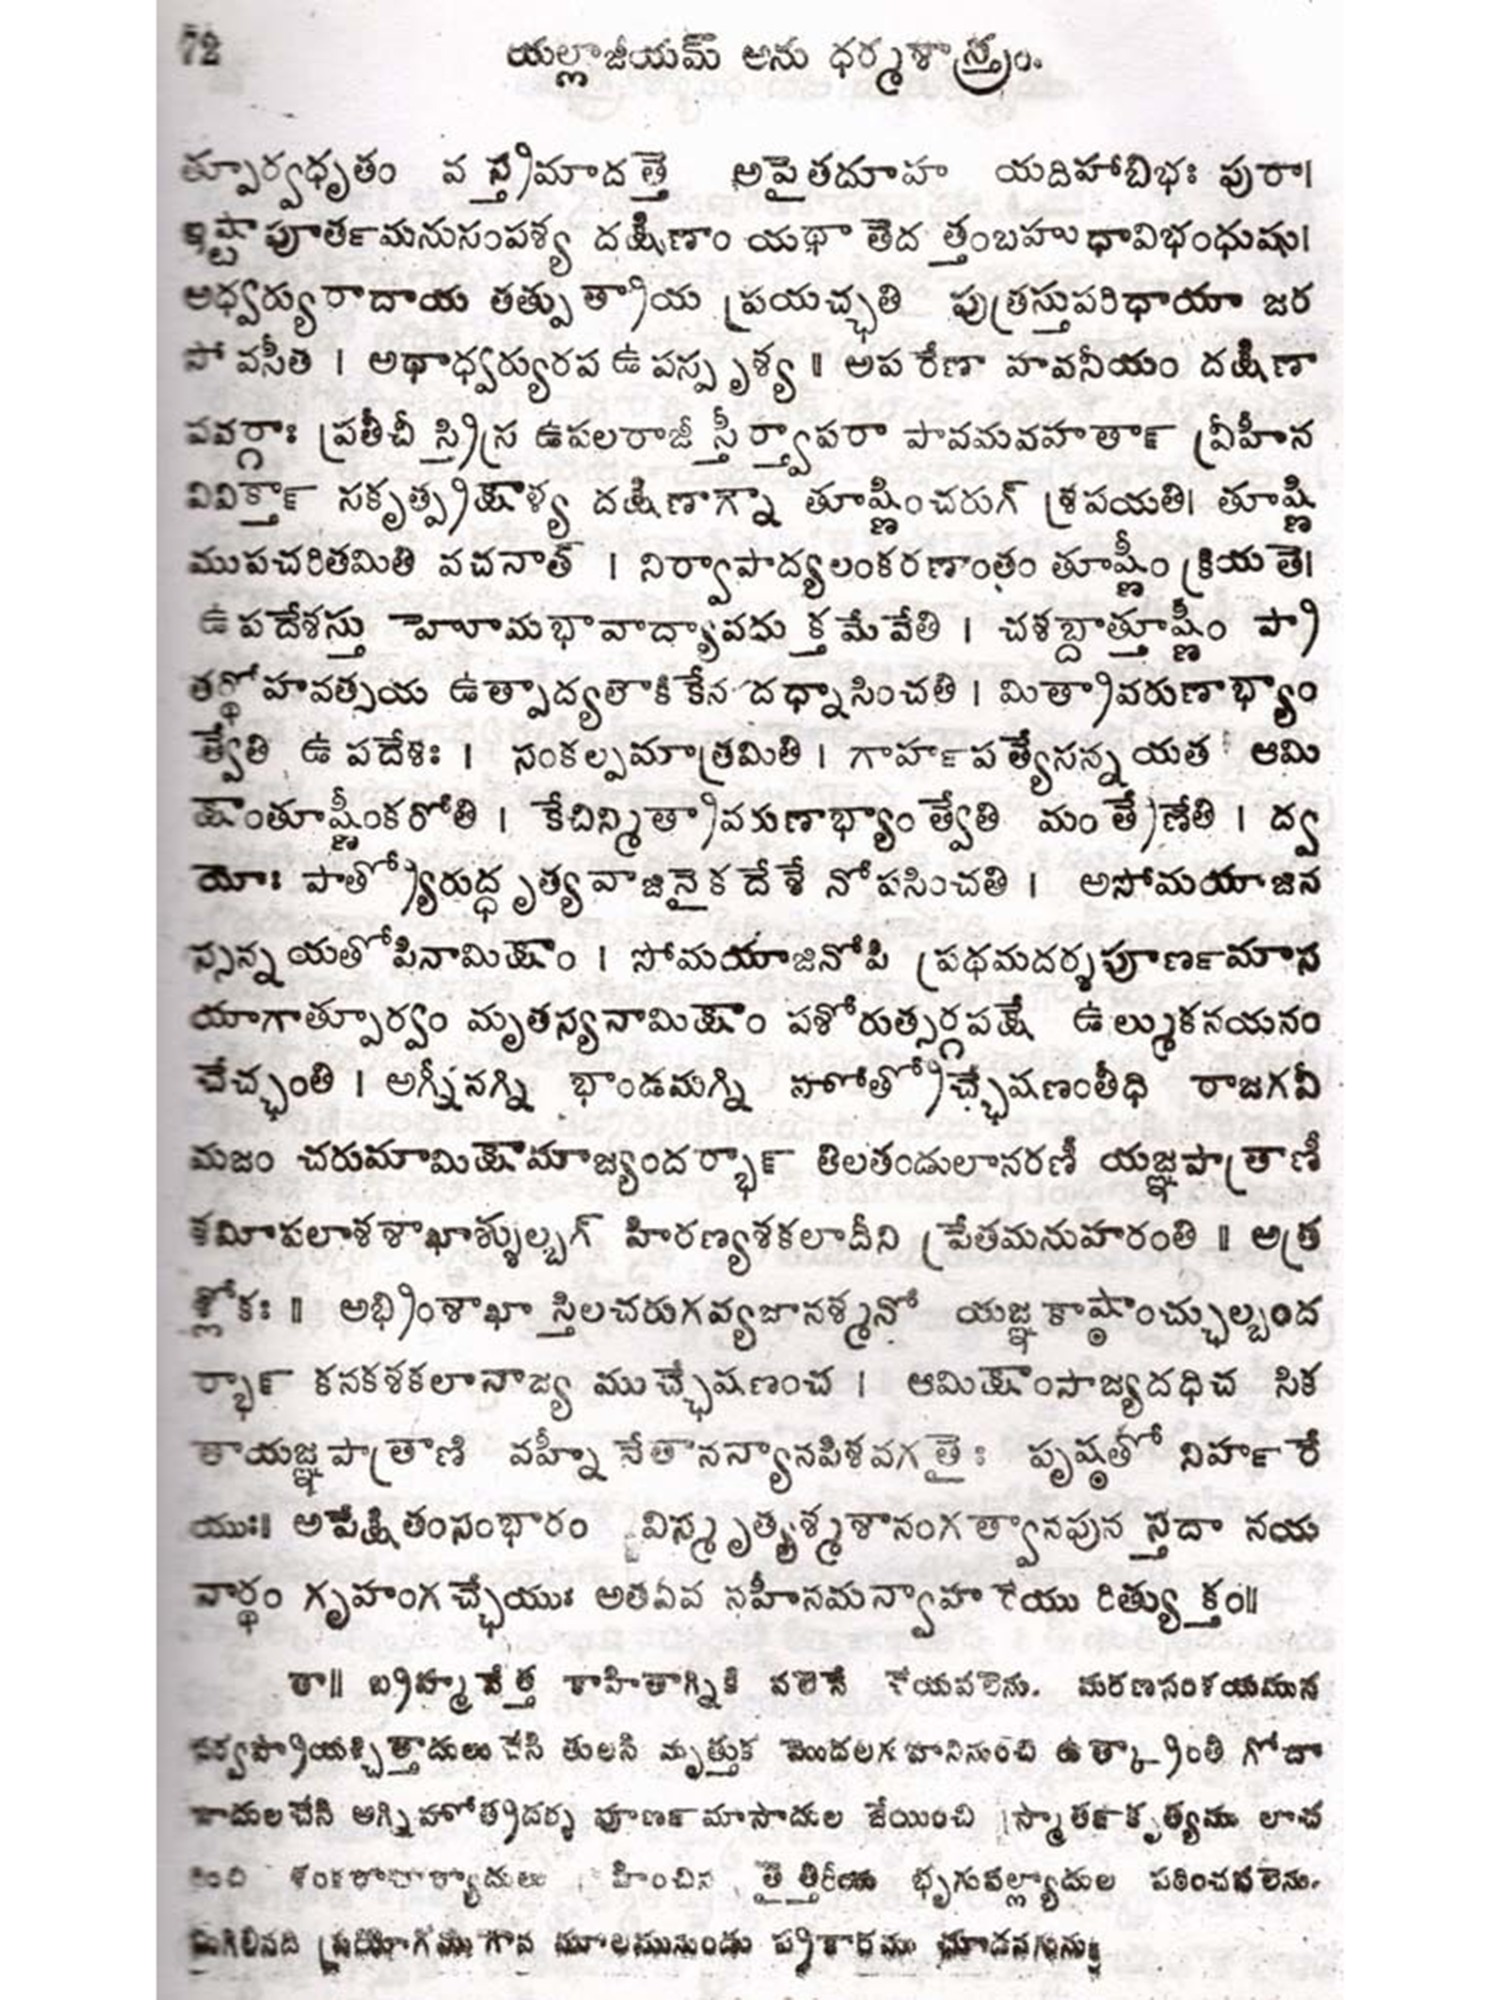 72 యల్లాజీయమ్ అను ధర్మశాస్త్రం.
త్పూర్వధృతం వస్త్రిమాదత్తె అపైతదూహ యదిహాబిభః పురా।
ఇష్టాపూర్తమనుసంపశ్య దక్షిణాం యథా తేద త్తంబహుధావిభంధుషు।
అధ్వర్యురాదాయ తత్పుత్రాయ ప్రయచ్ఛతి పుత్రస్తుపరిధాయా జర
సో వసీత । అథాధ్వర్యురప ఉపస్పృశ్య ॥ అపరేణా హవనీయం దక్షిణా
పవర్గాః ప్రతీచీ స్త్రిస్ర ఉపలరాజీ స్తీర్త్వాపరా పావమవహతా౯ వ్రీహీన
వివిక్తా౯ సకృత్ప్రక్షాళ్య దక్షిణాగ్నా తూష్ణించరుగ్ శ్రపయతి। తూష్ణి
ముపచరితమితి వచనాత్ । నిర్వాపాద్యలంకరణాంతం తూష్ణీం క్రియతె।
ఉపదేశస్తు హొమభావాద్యావదు క్తమేవేతి । చశబ్దాత్తూష్ణీం ప్రా
తర్దోహవత్సయ ఉత్పాద్యలౌకికేన దధ్నాసించతి । మిత్రావరుణాభ్యాం
త్వేతి ఉపదేశః । సంకల్పమాత్రమితి । గార్హపత్యేసన్నయత ఆమి
క్షాంతూష్ణీంకరోతి । కేచిన్మిత్రావరుణాభ్యాం త్వేతి మంత్రేణేతి । ద్వ
యోః పాత్ర్యోరుద్ధృత్యవాజినైకదేశే నోపసించతి । అసోమయాజిన
స్సన్నయతోపినామిక్షాం । సోమయాజినోపి ప్రథమదర్శపూర్ణమాస
యాగాత్పూర్వం మృతస్యనామిక్షాం పశోరుత్సర్గపక్షే ఉల్ముకనయనం
చేచ్ఛంతి । అగ్నీనగ్ని భాండమగ్ని హోత్రోచ్ఛేషణంతీధి రాజగవీ
మజం చరుమామిక్షామాజ్యందర్భా౯ తిలతండులానరణీ యజ్ఞపాత్రాణి
శమీపలాశశాఖాశ్శుల్బగ్ హిరణ్యశకలాదీని ప్రేతమనుహరంతి ॥ అత్ర
శ్లోకః ॥ అభ్రింశాఖా స్తిలచరుగవ్యజానశ్మనో యజ్ఞకాష్ఠాంచ్ఛుల్బంద
ర్భా౯ కనకశకలానాజ్య ముచ్ఛేషణంచ । ఆమిక్షాంసాజ్యదధిచ సిక
తాయజ్ఞపాత్రాణి వహ్నీ నేతానన్యానపిశవగతైః పృష్ఠతో నిర్హరే
యుః॥ అపేక్షితంసంభారం విస్మృత్యశ్మశానంగత్వానపున స్తదా నయ
నార్థం గృహంగచ్ఛేయుః అతఏవ నహీనమన్వాహ రేయు రిత్యుక్తం॥
తా॥ బ్రహ్మవేత్త రాహితాగ్నికి వలెనే చేయవలెను. మరణసంశయమున
సర్వప్రాయశ్చిత్తాదులు చేసి తులసి మృత్తుక మొదలగు వానినుంచి ఉత్క్రాంతి గోదా
నాదులచేసి అగ్నిహోత్రదర్శ పూర్ణమాసాదుల జేయించి స్మార్తకృత్యము లాచ
రించి శంకరాచార్యాదులు హించిన తైత్తిరీయ భృగువల్ల్యాదుల పఠించవలెను.
మిగిలినది మూలమునందు ప్రకారము చూడనగును॥